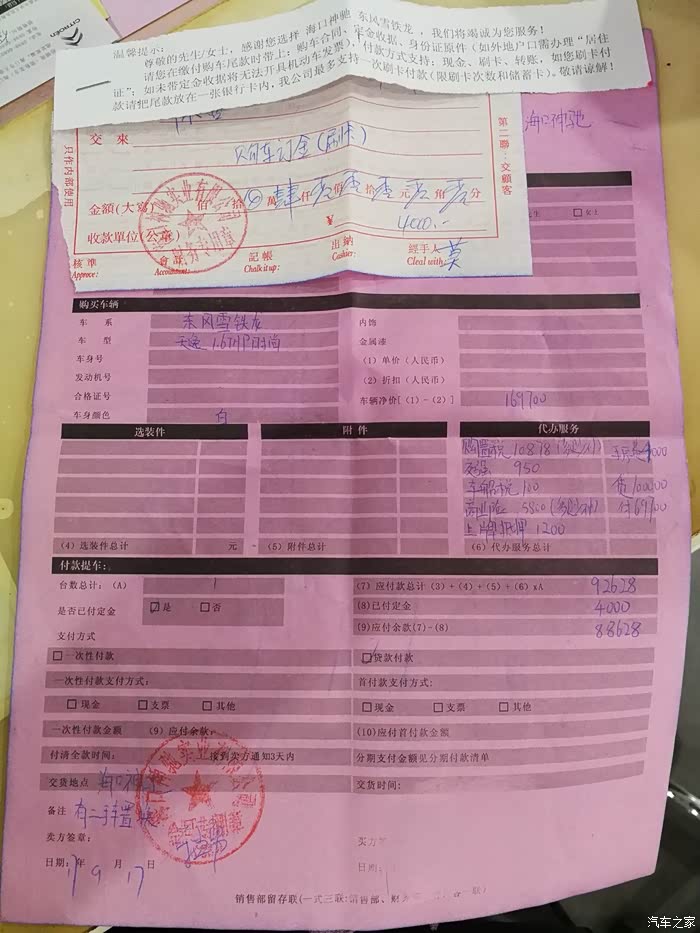 CITROËN
温馨提示:
尊敬的先生/女士,感谢您选择 海口神驰 东风雪铁龙,我们将竭诚为您服务!
请您在缴付购车尾款时带上:购车合同、定金收据、身份证原件(如外地户口需办理“居住
证”;如未带定金收据将无法开具机动车发票),付款方式支持:现金、刷卡、转账,如您刷卡付
款请把尾款放在一张银行卡内,我公司最多支持一次刷卡付款(限刷卡次数和储蓄卡)。敬请谅解!
只作内部使用
第二聯:交顧客
交來
购车订金(刷卡)
金額(大寫) 佰 拾 萬 肆仟 零佰 零拾 零元 零角 零分
¥ 4000.-
收款單位(公章)
財务专用章
核準 Approve:
會計 Accountant:
記帳 Chalk it up:
出納 Cashier:
經手人 Cleal with: 莫
海口神驰
□女士
购买车辆
车 系 东风雪铁龙
内饰
车 型 天逸 1.6THP时尚
金属漆
车身号
(1)单价(人民币)
发动机号
(2)折扣(人民币)
合格证号
车辆净价[(1)-(2)] 169700
车身颜色 白
选装件 附件 代办服务
购置税 10878(多退少补)
交强 950
车船税 100
贷100000
商业险 5800(多退少补) 付69700
上牌抵押 1200
(4)选装件总计 元
(5)附件总计
(6)代办服务总计
付款提车:
台数总计:(A) 1
(7)应付款总计(3)+(4)+(5)+(6)xA 92628
是否已付定金 ☑是 □否
(8)已付定金 4000
(9)应付余款(7)-(8) 88628
支付方式
□一次性付款
☑贷款付款
一次性付款支付方式:
首付款支付方式:
□现金 □支票 □其他
□现金 □支票 □其他
一次性付款金额 (9)应付余款:
(10)应付首付款金额
付清全款时间: 接到卖方通知3天内
分期支付金额见分期付款清单
交货地点 海口神驰
交货时间:
备注 有二手车置换
卖方签章:
买方签
合同专用章
日期: 17年 9月 17日
日期:
销售部留存联(一式三联:销售部、财务
汽车之家